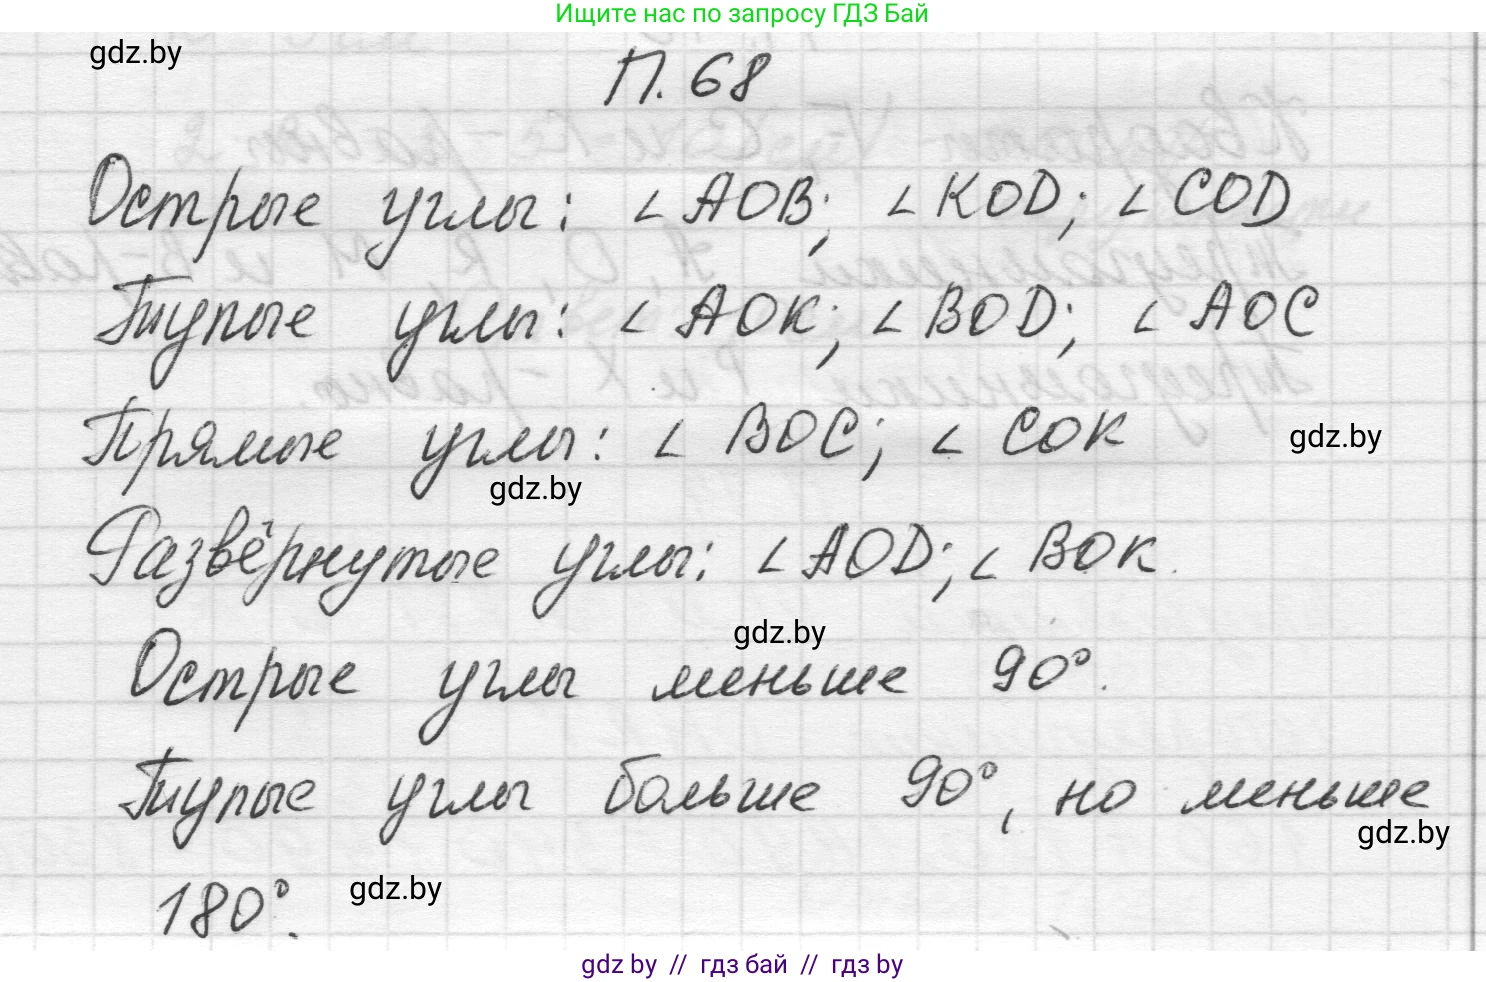 Ищите нас по запросу ГДЗ Бай
gdz.by
П. 68
Острые углы: ∠ AOB; ∠ KOD; ∠ COD
Тупые углы: ∠ AOK; ∠ BOD; ∠ AOC
Прямые углы: ∠ BOC; ∠ COK
gdz.by
gdz.by
Развёрнутые углы: ∠ AOD; ∠ BOK.
gdz.by
Острые углы меньше 90°.
Тупые углы больше 90°, но меньше
gdz.by
180°.
gdz.by
gdz by // гдз бай // гдз by